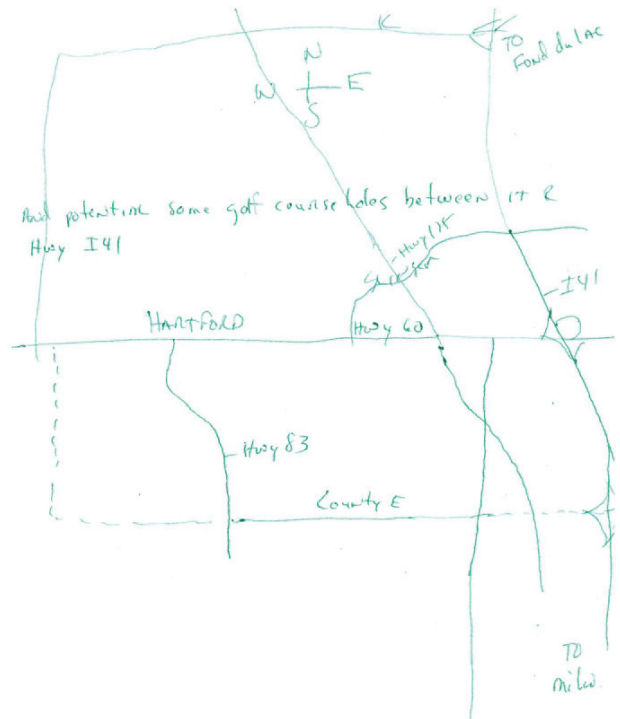 K
TO
Fond du LAC
N
W E
S
And potential some golf course holes between it &
Hwy I41
Hwy 175
Slinger
I41
HARTFORD
Hwy 60
Hwy 83
County E
TO
milw.